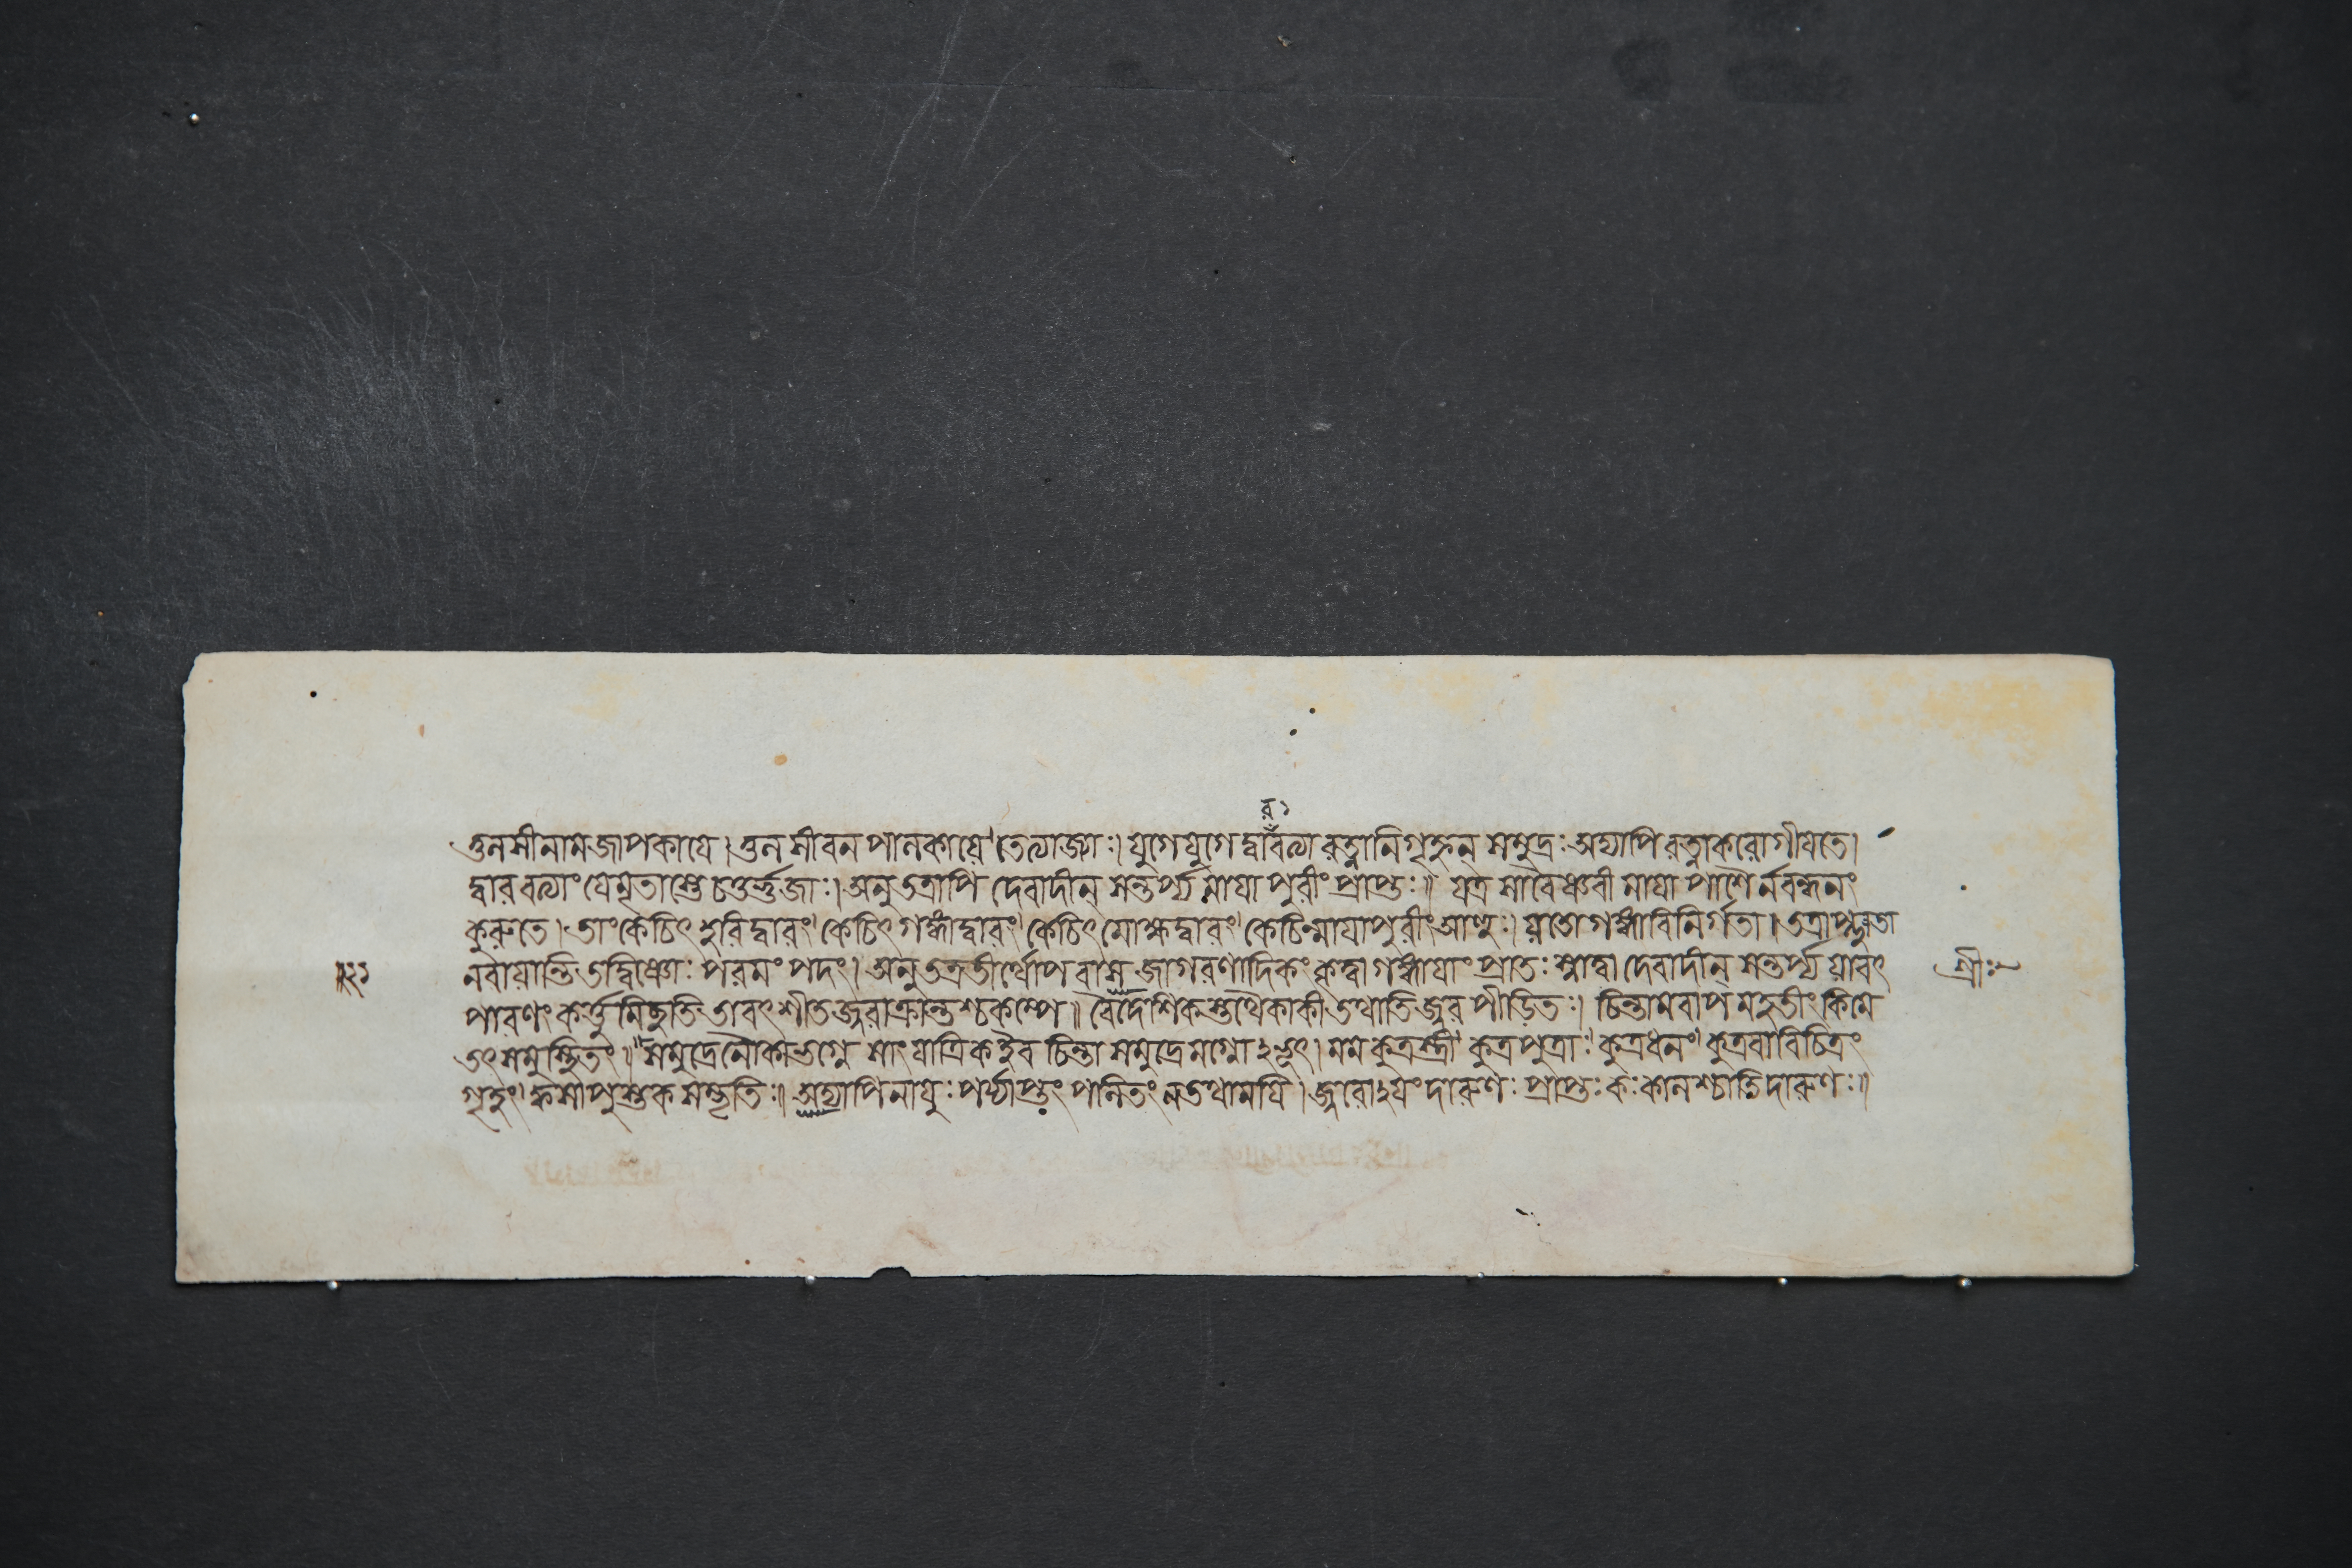 র ১
তুলসীনামজাপকা যে । তুলসীবনপালকা যে । তে ত্যাজ্যাঃ । যুগে যুগে দ্বাৰৱত্যা ৰত্নানি গৃহ্ণন্ সমুদ্রঃ অদ্যাপি ৰত্নাকৰো গীযতে ।
দ্বাৰৱত্যাং যে মৃতাস্তে চতুর্ভুজাঃ । অনু তত্রাপি দেৱাদীন্ সন্তর্প্য মাযাপুৰীং প্রাপ্তঃ ॥ যত্র সা ৱৈষ্ণৱী মাযা পাশৈর্নবন্ধনং
কুৰুতে । তাং কেচিৎ হৰিদ্বাৰং । কেচিৎ গঙ্গাদ্বাৰং । কেচিৎ মোক্ষদ্বাৰং । কেচিন্মাযাপুৰীং আহুঃ । যতো গঙ্গা ৱিনির্গতা । তত্রাপ্লুতা
নৰা যান্তি তদ্বিষ্ণোঃ পৰমং পদং । অনু তত্র তীর্থোপৱাসজাগৰণাদিকং কৃত্বা গঙ্গাযাং প্রাতঃ স্নাত্বা দেৱাদীন্ সন্তর্প্য যাৱৎ
পাৰণং কর্ত্তুমিচ্ছতি তাৱৎ শীতজ্বৰাক্রান্তশ্চকম্পে ॥ ৱৈদেশিকস্তথৈকাকী তথাতিজ্বৰপীড়িতঃ । চিন্তামৱাপ মহতীং কিমে
তৎ সমুপস্থিতং ॥ সমুদ্রে নৌকাভগ্নে সাংযাত্রিক ইৱ চিন্তাসমুদ্রে মগ্নোঽভূৎ । মম কুত্র স্ত্রী । কুত্র পুত্রাঃ । কুত্র ধনং । কুত্র ৱা ৱিচিত্রং
গৃহং । ক্ব সা পুস্তকসম্ভৃতিঃ ॥ অদ্যাপি নাযুঃ পর্য্যাপ্তং পলিতং ন তথা মযি । জ্বৰোঽযং দাৰুণঃ প্রাপ্তঃ কঃ কালশ্চাতিদাৰুণঃ ॥
শ্রীঃ